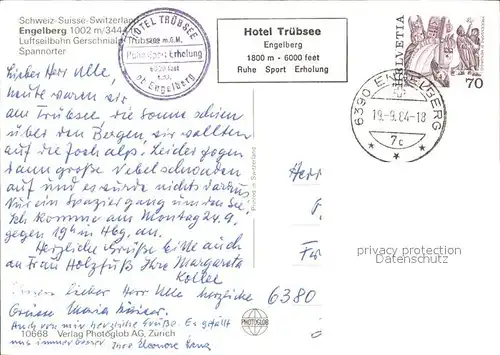 Schweiz-Suisse-Switzerland
Engelberg 1002 m/3444
Luftseilbahn Gerschnialp-Trübsee
Spannörter
HOTEL TRÜBSEE
1800 m.ü.M.
Ruhe Sport Erholung
6000 feet
ob Engelberg
Hotel Trübsee
Engelberg
1800 m - 6000 feet
Ruhe Sport Erholung
HELVETIA
70
6390 ENGELBERG
19.-9.84-18
7c
Lieber Herr Ulle,
heute waren wir
am Trübsee, die Sonne schien
über den Bergen, wir wollten
auf die Jochalp. Leider zogen
dann große Nebelschwaden
auf und es wurde nichts daraus
Nur ein Spaziergang um den See!
Ich komme am Montag 24.9.
gegen 19h in Hbg. an.
Herzliche Grüße bitte auch
an Frau Holzfuß Ihre Margareta
lieber Herr Ulle herzliche
Grüsse Maria
Auch von mir herzliche Grüße. Es gefällt
uns immer besser Ihre Eleonore
Printed in Switzerland
Herr
Fr
6380
privacy protection
Datenschutz
PHOTOGLOB
10668 Verlag Photoglob AG, Zürich